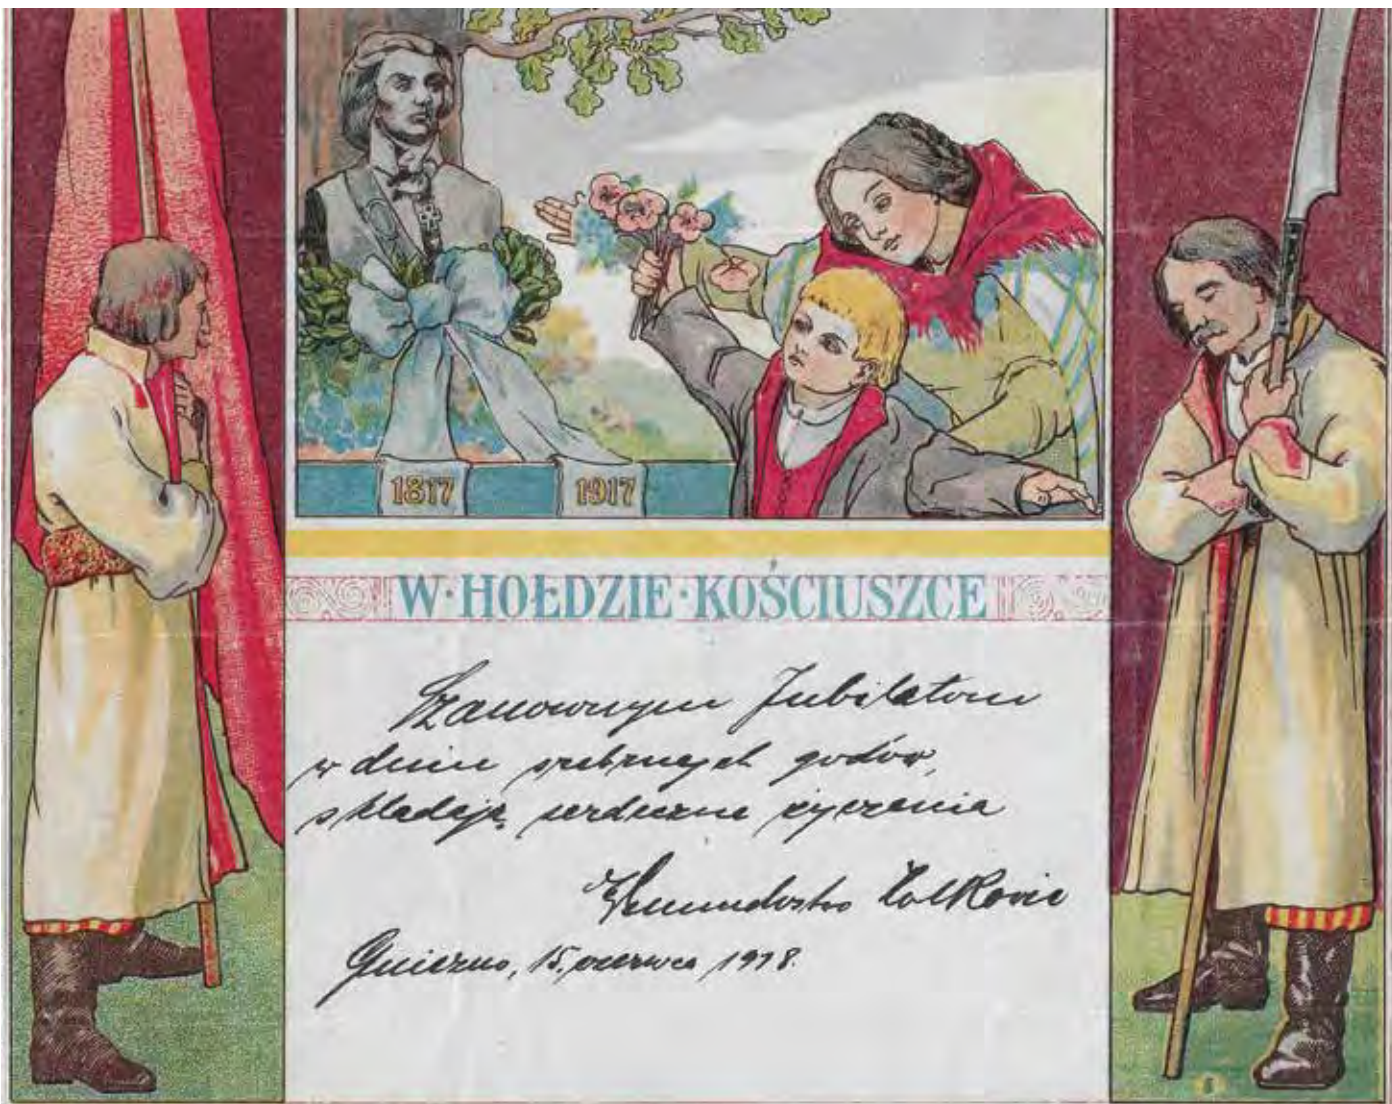 1817 1917
W·HOŁDZIE·KOŚCIUSZCE
Szanownym Jubilatom
w dniu srebrnych godów,
składają serdeczne życzenia
Gniezno, 15, czerwca 1918.